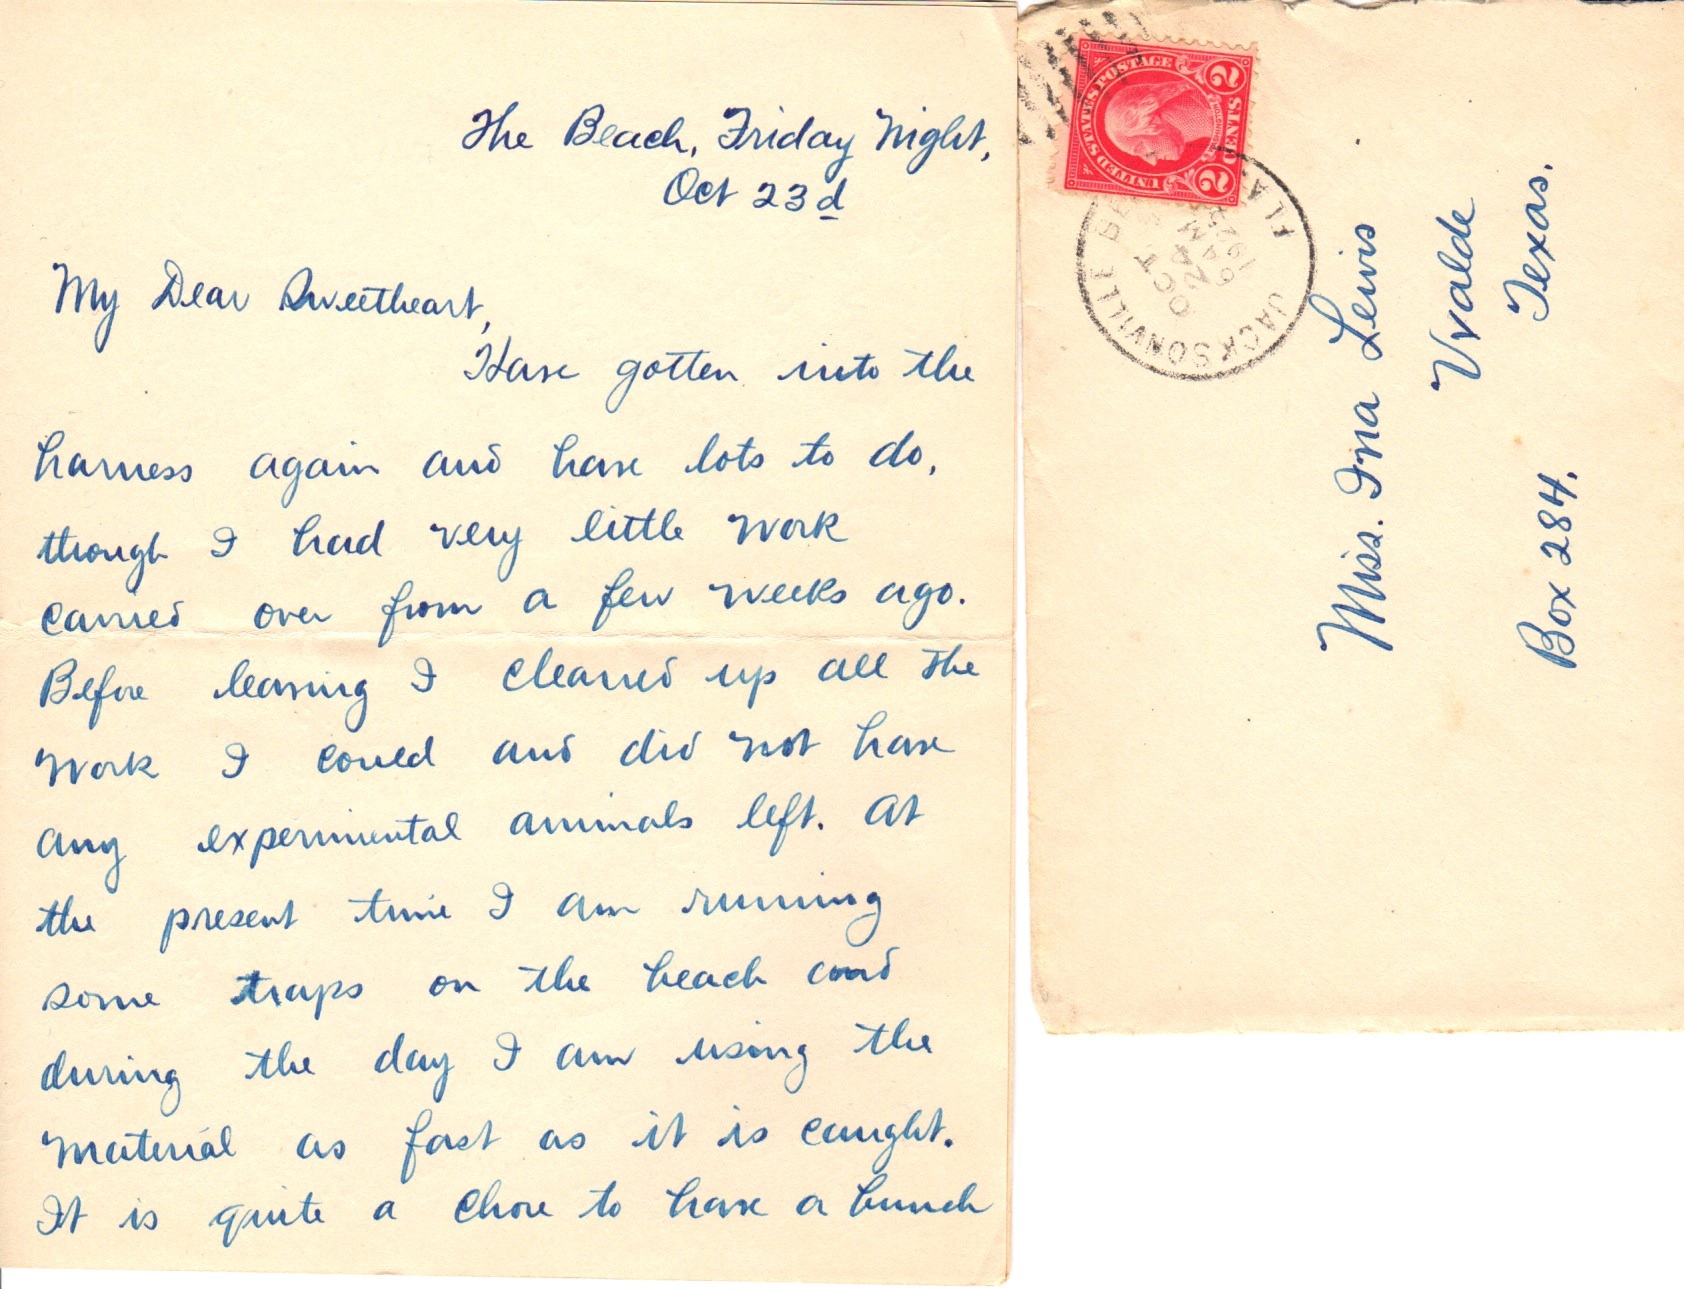 The Beach, Friday Night,
Oct 23d
My Dear Sweetheart,
Have gotten into the
harness again and have lots to do,
though I had very little work
carried over from a few weeks ago.
Before leaving I cleaned up all the
work I could and did not have
any experimental animals left. At
the present time I am running
some traps on the beach and
during the day I am using the
material as fast as it is caught.
It is quite a chore to have a bunch
UNITED STATES POSTAGE
2 CENTS 2
JACKSONVILLE
FLA.
OCT
24
6 AM
Miss. Ina Lewis
Uvalde
Texas.
Box 284.